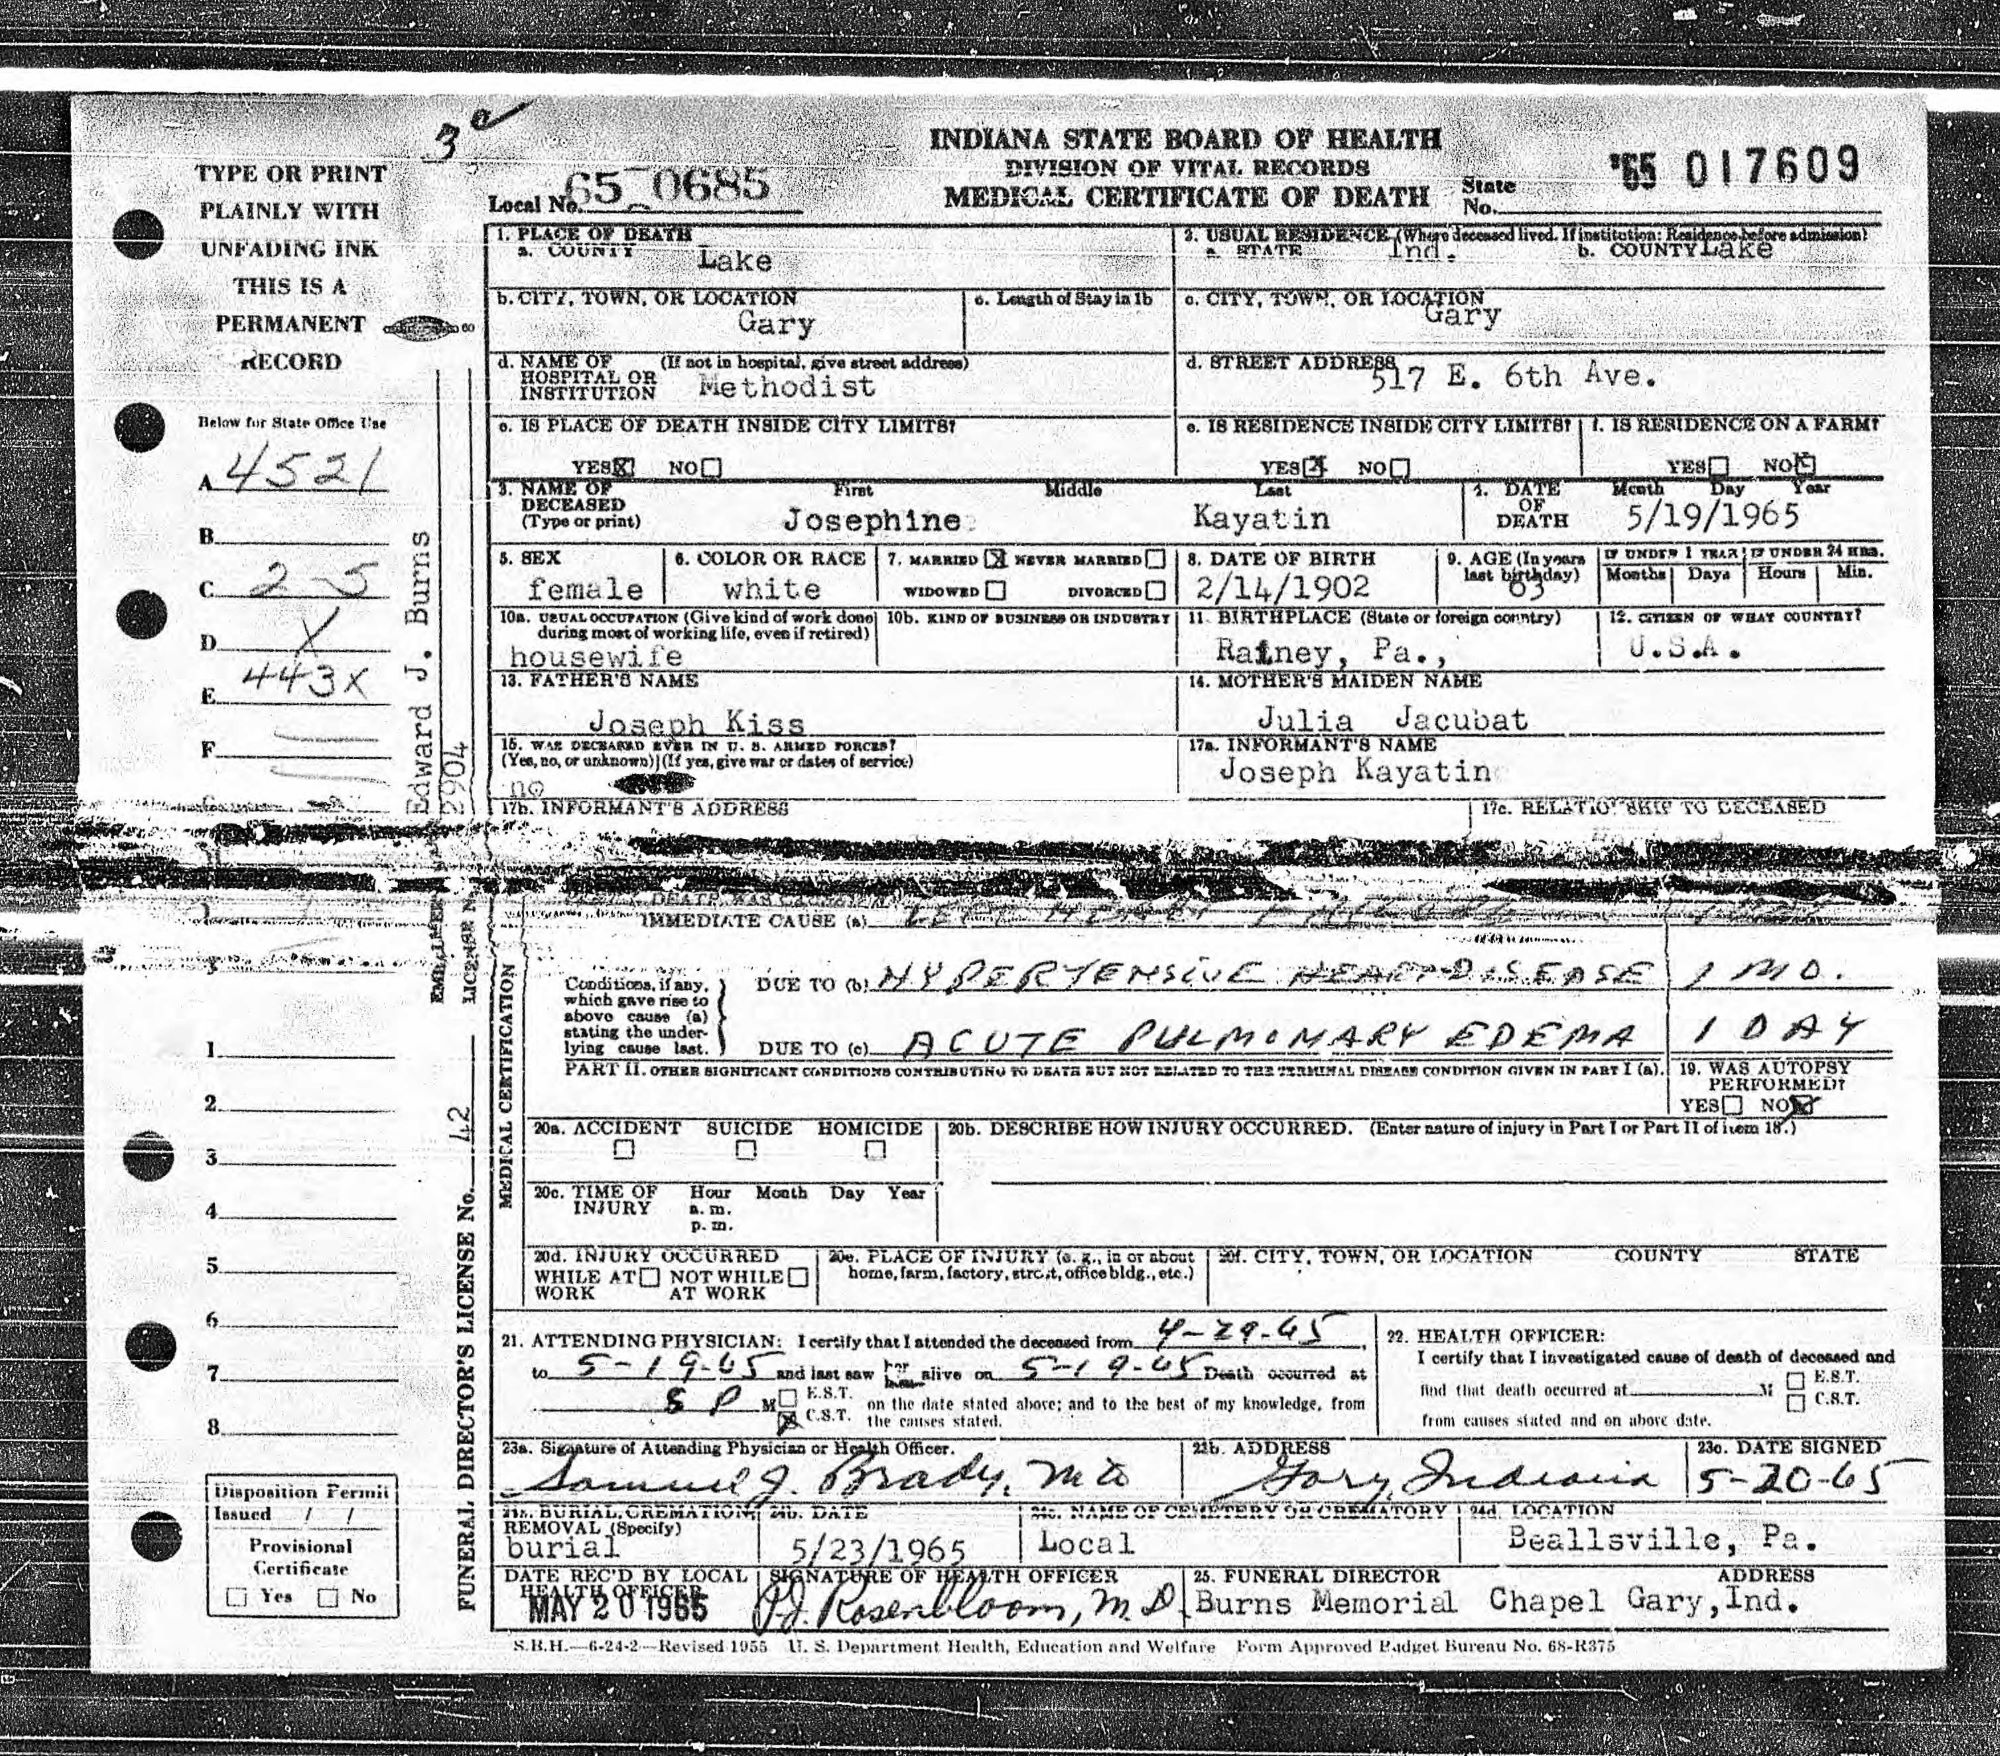 3c
INDIANA STATE BOARD OF HEALTH
DIVISION OF VITAL RECORDS
MEDICAL CERTIFICATE OF DEATH
Local No. 65 0685
State No. '65 017609
TYPE OR PRINT
PLAINLY WITH
UNFADING INK
THIS IS A
PERMANENT
RECORD
Below for State Office Use
A 4521
B
C 2-5
D X
E 443X
F
Edward J. Burns
LICENSE No. 2904
FUNERAL DIRECTOR'S LICENSE No. 42
1. PLACE OF DEATH
a. COUNTY Lake
2. USUAL RESIDENCE (Where deceased lived. If institution: Residence before admission)
a. STATE Ind. b. COUNTY Lake
b. CITY, TOWN, OR LOCATION Gary
c. Length of Stay in 1b
c. CITY, TOWN, OR LOCATION Gary
d. NAME OF HOSPITAL OR INSTITUTION (If not in hospital, give street address) Methodist
d. STREET ADDRESS 517 E. 6th Ave.
e. IS PLACE OF DEATH INSIDE CITY LIMITS?
YES X NO
e. IS RESIDENCE INSIDE CITY LIMITS?
YES X NO
f. IS RESIDENCE ON A FARM?
YES NO X
3. NAME OF DECEASED (Type or print) First Middle Last
Josephine Kayatin
4. DATE OF DEATH Month Day Year
5/19/1965
5. SEX female
6. COLOR OR RACE white
7. MARRIED X NEVER MARRIED
WIDOWED DIVORCED
8. DATE OF BIRTH 2/14/1902
9. AGE (In years last birthday) 63
IF UNDER 1 YEAR Months Days
IF UNDER 24 HRS. Hours Min.
10a. USUAL OCCUPATION (Give kind of work done during most of working life, even if retired)
housewife
10b. KIND OF BUSINESS OR INDUSTRY
11. BIRTHPLACE (State or foreign country)
Rainey, Pa.,
12. CITIZEN OF WHAT COUNTRY?
U.S.A.
13. FATHER'S NAME
Joseph Kiss
14. MOTHER'S MAIDEN NAME
Julia Jacubat
15. WAS DECEASED EVER IN U. S. ARMED FORCES?
(Yes, no, or unknown) (If yes, give war or dates of service)
no
17a. INFORMANT'S NAME
Joseph Kayatin
17b. INFORMANT'S ADDRESS
17c. RELATIONSHIP TO DECEASED
MEDICAL CERTIFICATION
IMMEDIATE CAUSE (a) LEFT HEART FAILURE
Conditions, if any, which gave rise to above cause (a) stating the underlying cause last.
DUE TO (b) HYPERTENSIVE HEART DISEASE 1 MO.
DUE TO (c) ACUTE PULMONARY EDEMA 1 DAY
PART II. OTHER SIGNIFICANT CONDITIONS CONTRIBUTING TO DEATH BUT NOT RELATED TO THE TERMINAL DISEASE CONDITION GIVEN IN PART I (a).
19. WAS AUTOPSY PERFORMED?
YES NO X
20a. ACCIDENT SUICIDE HOMICIDE
20b. DESCRIBE HOW INJURY OCCURRED. (Enter nature of injury in Part I or Part II of item 18.)
20c. TIME OF INJURY Hour Month Day Year
a. m.
p. m.
20d. INJURY OCCURRED
WHILE AT WORK NOT WHILE AT WORK
20e. PLACE OF INJURY (e. g., in or about home, farm, factory, street, office bldg., etc.)
20f. CITY, TOWN, OR LOCATION COUNTY STATE
21. ATTENDING PHYSICIAN: I certify that I attended the deceased from 4-29-65
to 5-19-65 and last saw her alive on 5-19-65 Death occurred at
P M E.S.T. X C.S.T. on the date stated above; and to the best of my knowledge, from the causes stated.
22. HEALTH OFFICER:
I certify that I investigated cause of death of deceased and
find that death occurred at M E.S.T. C.S.T.
from causes stated and on above date.
23a. Signature of Attending Physician or Health Officer.
Samuel J. Brady, MD
22b. ADDRESS
Gary, Indiana
23c. DATE SIGNED
5-20-65
24a. BURIAL, CREMATION, REMOVAL (Specify)
burial
24b. DATE
5/23/1965
24c. NAME OF CEMETERY OR CREMATORY
Local
24d. LOCATION
Beallsville, Pa.
DATE REC'D BY LOCAL HEALTH OFFICER
MAY 20 1965
SIGNATURE OF HEALTH OFFICER
Rosenbloom, M.D.
25. FUNERAL DIRECTOR ADDRESS
Burns Memorial Chapel Gary, Ind.
1
2
3
4
5
6
7
8
Disposition Permit
Issued / /
Provisional
Certificate
Yes No
S.B.H.—6-24-2—Revised 1955 U. S. Department Health, Education and Welfare Form Approved Budget Bureau No. 68-R375